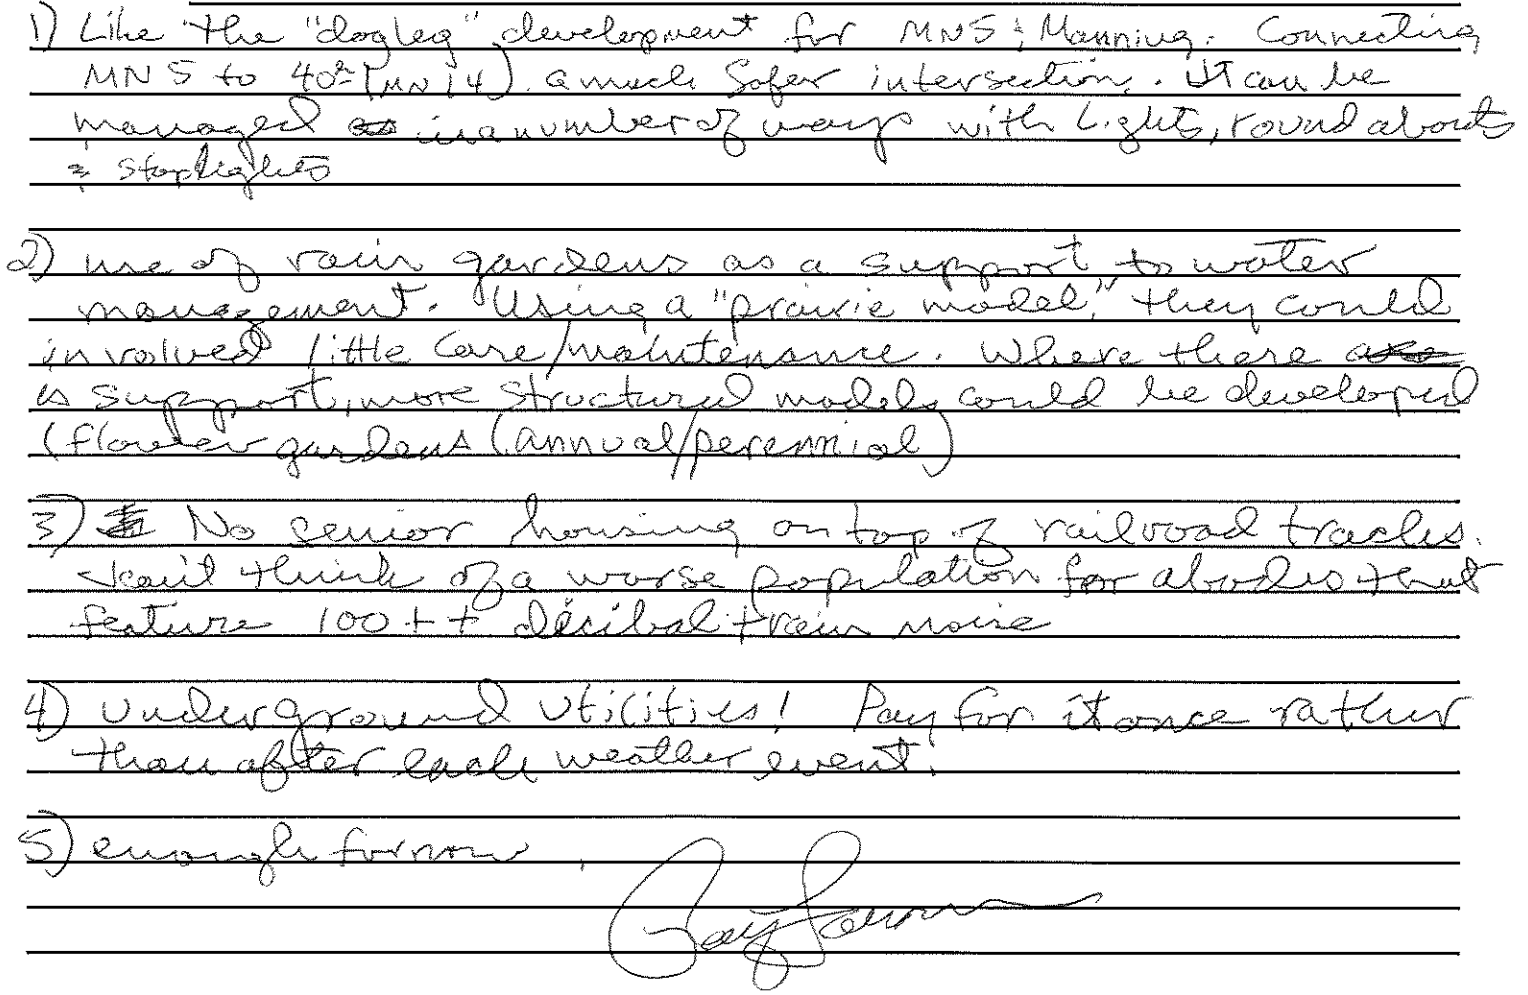 1) Like the "dogleg" development for MN5 & Manning. Connecting
MN5 to 40th (MN 14) a much safer intersection. It can be
managed in a number of ways with Lights, roundabouts
& stoplights
2) use of rain gardens as a support to water
management. Using a "prairie model," they could
involved little care/maintenance. Where there
is support, more structured models could be developed
(flower gardens (annual/perennial)
3) No senior housing on top of railroad tracks.
I can't think of a worse population for abodes that
feature 100++ decibal train noise
4) Underground Utilities! Pay for it once rather
than after each weather event.
5) enough for now.